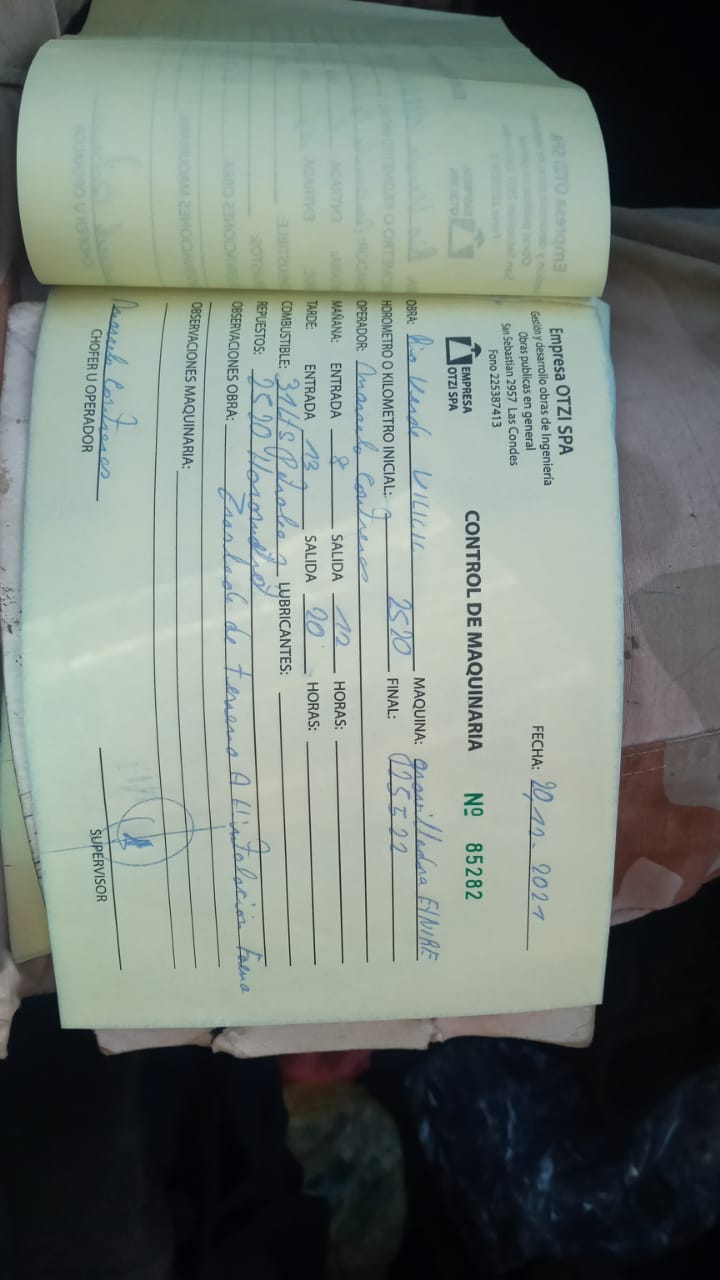 Empresa OTZI SPA
Gestión y desarrollo obras de Ingeniería
Obras publicas en general
San Sebastian 2957 Las Condes
Fono 225387413
EMPRESA
OTZI SPA
FECHA: 20,12-2021
CONTROL DE MAQUINARIA Nº 85282
OBRA: Rio Verde MAQUINA: gravilladora
HOROMETRO O KILOMETRO INICIAL: 2520 FINAL:
OPERADOR: Marcelo Contreras
MAÑANA: ENTRADA 8 SALIDA 12 HORAS:
TARDE: ENTRADA 13 SALIDA 20 HORAS:
COMBUSTIBLE: LUBRICANTES:
REPUESTOS: 2520 Horometro
OBSERVACIONES OBRA: Traslado de terreno A instalación Faena
OBSERVACIONES MAQUINARIA:
Marcelo Contreras
CHOFER U OPERADOR
SUPERVISOR